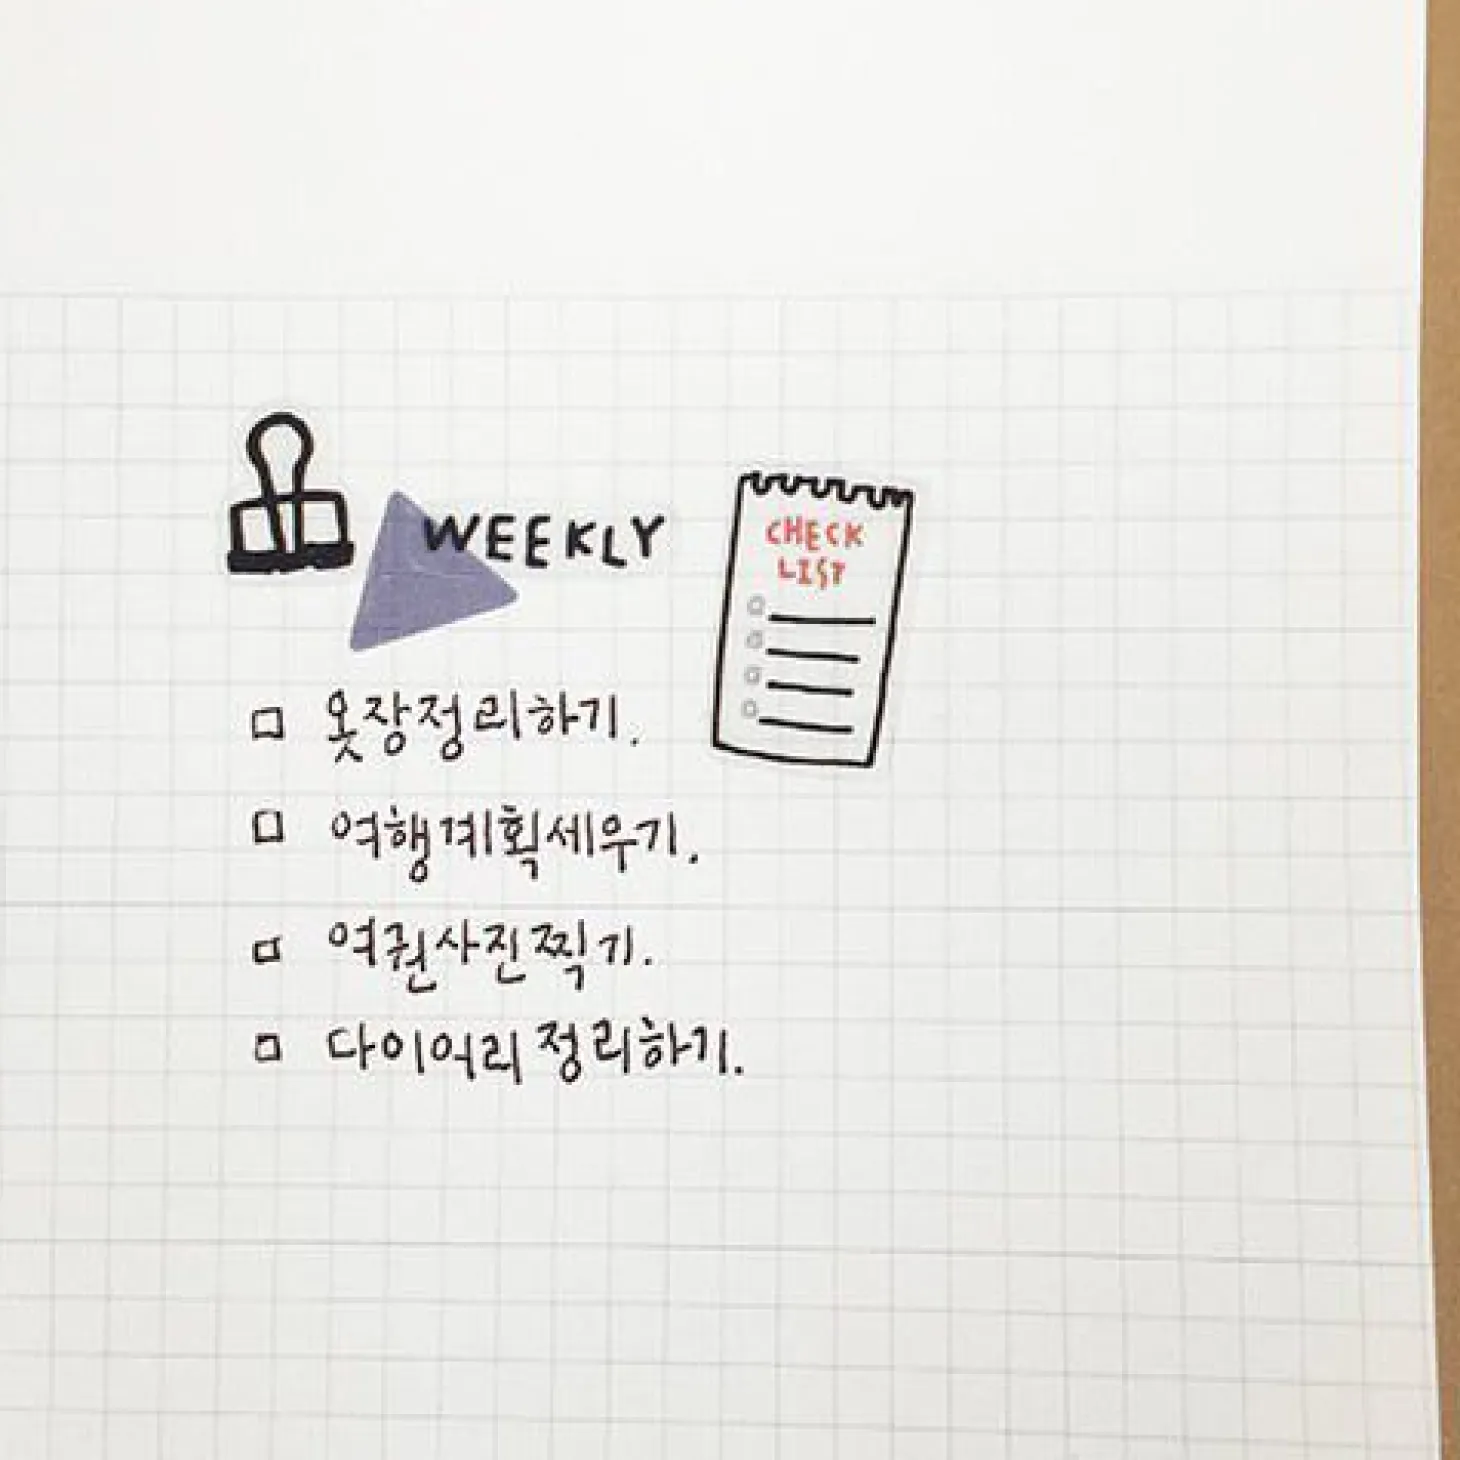 WEEKLY
CHECK
LIST
옷장정리하기.
여행계획세우기.
여권사진찍기.
다이어리 정리하기.